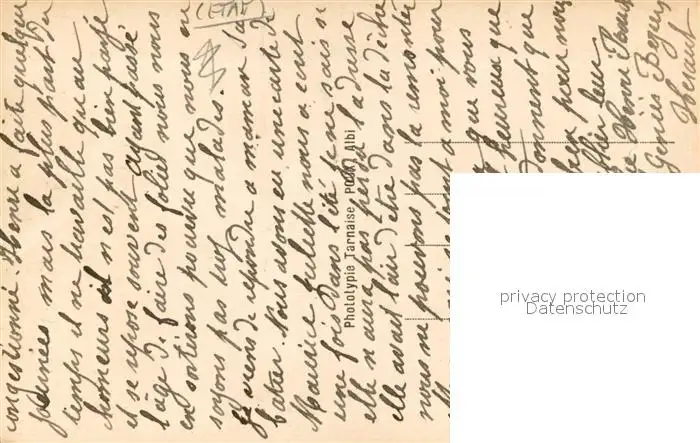 congestionné. Henri a fait quelque
journées mais la plus part du
temps il ne travaille qu'au
chomeurs il n'est pas bien payé
et se repose souvent ayant passé
l'âge de faire des folies nous nous
en sortions pourvu que nous ne
soyons pas trop malades.
Je viens de répondre a maman Sa
Nous avons eu une carte de
Maurice Juliette nous a écrit
une fois dans l'été je ne sais si
elle n'aura pas perdu l'adresse
elle avait l'air d'être dans la dèche
nous ne pouvons pas la remonter
moi pour
que vous
heureux que
donnent que
pour nous
leur
Henri
(ETAT)
Phototypie Tarnaise POUX, Albi
privacy protection
Datenschutz